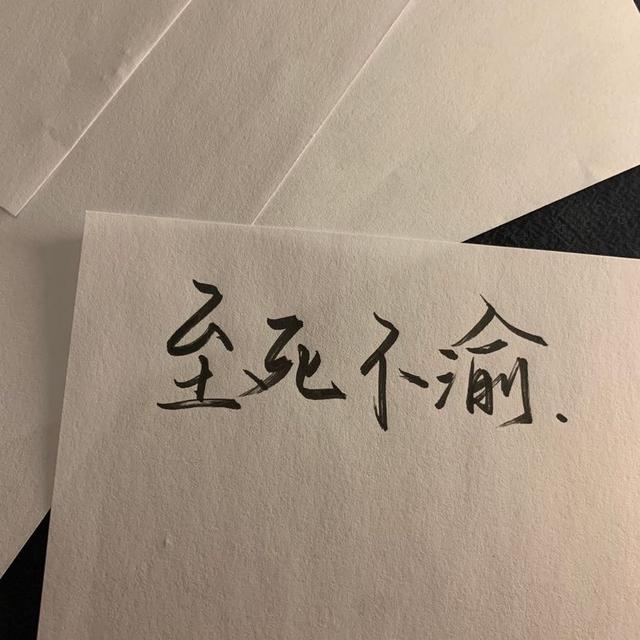 至死不渝.